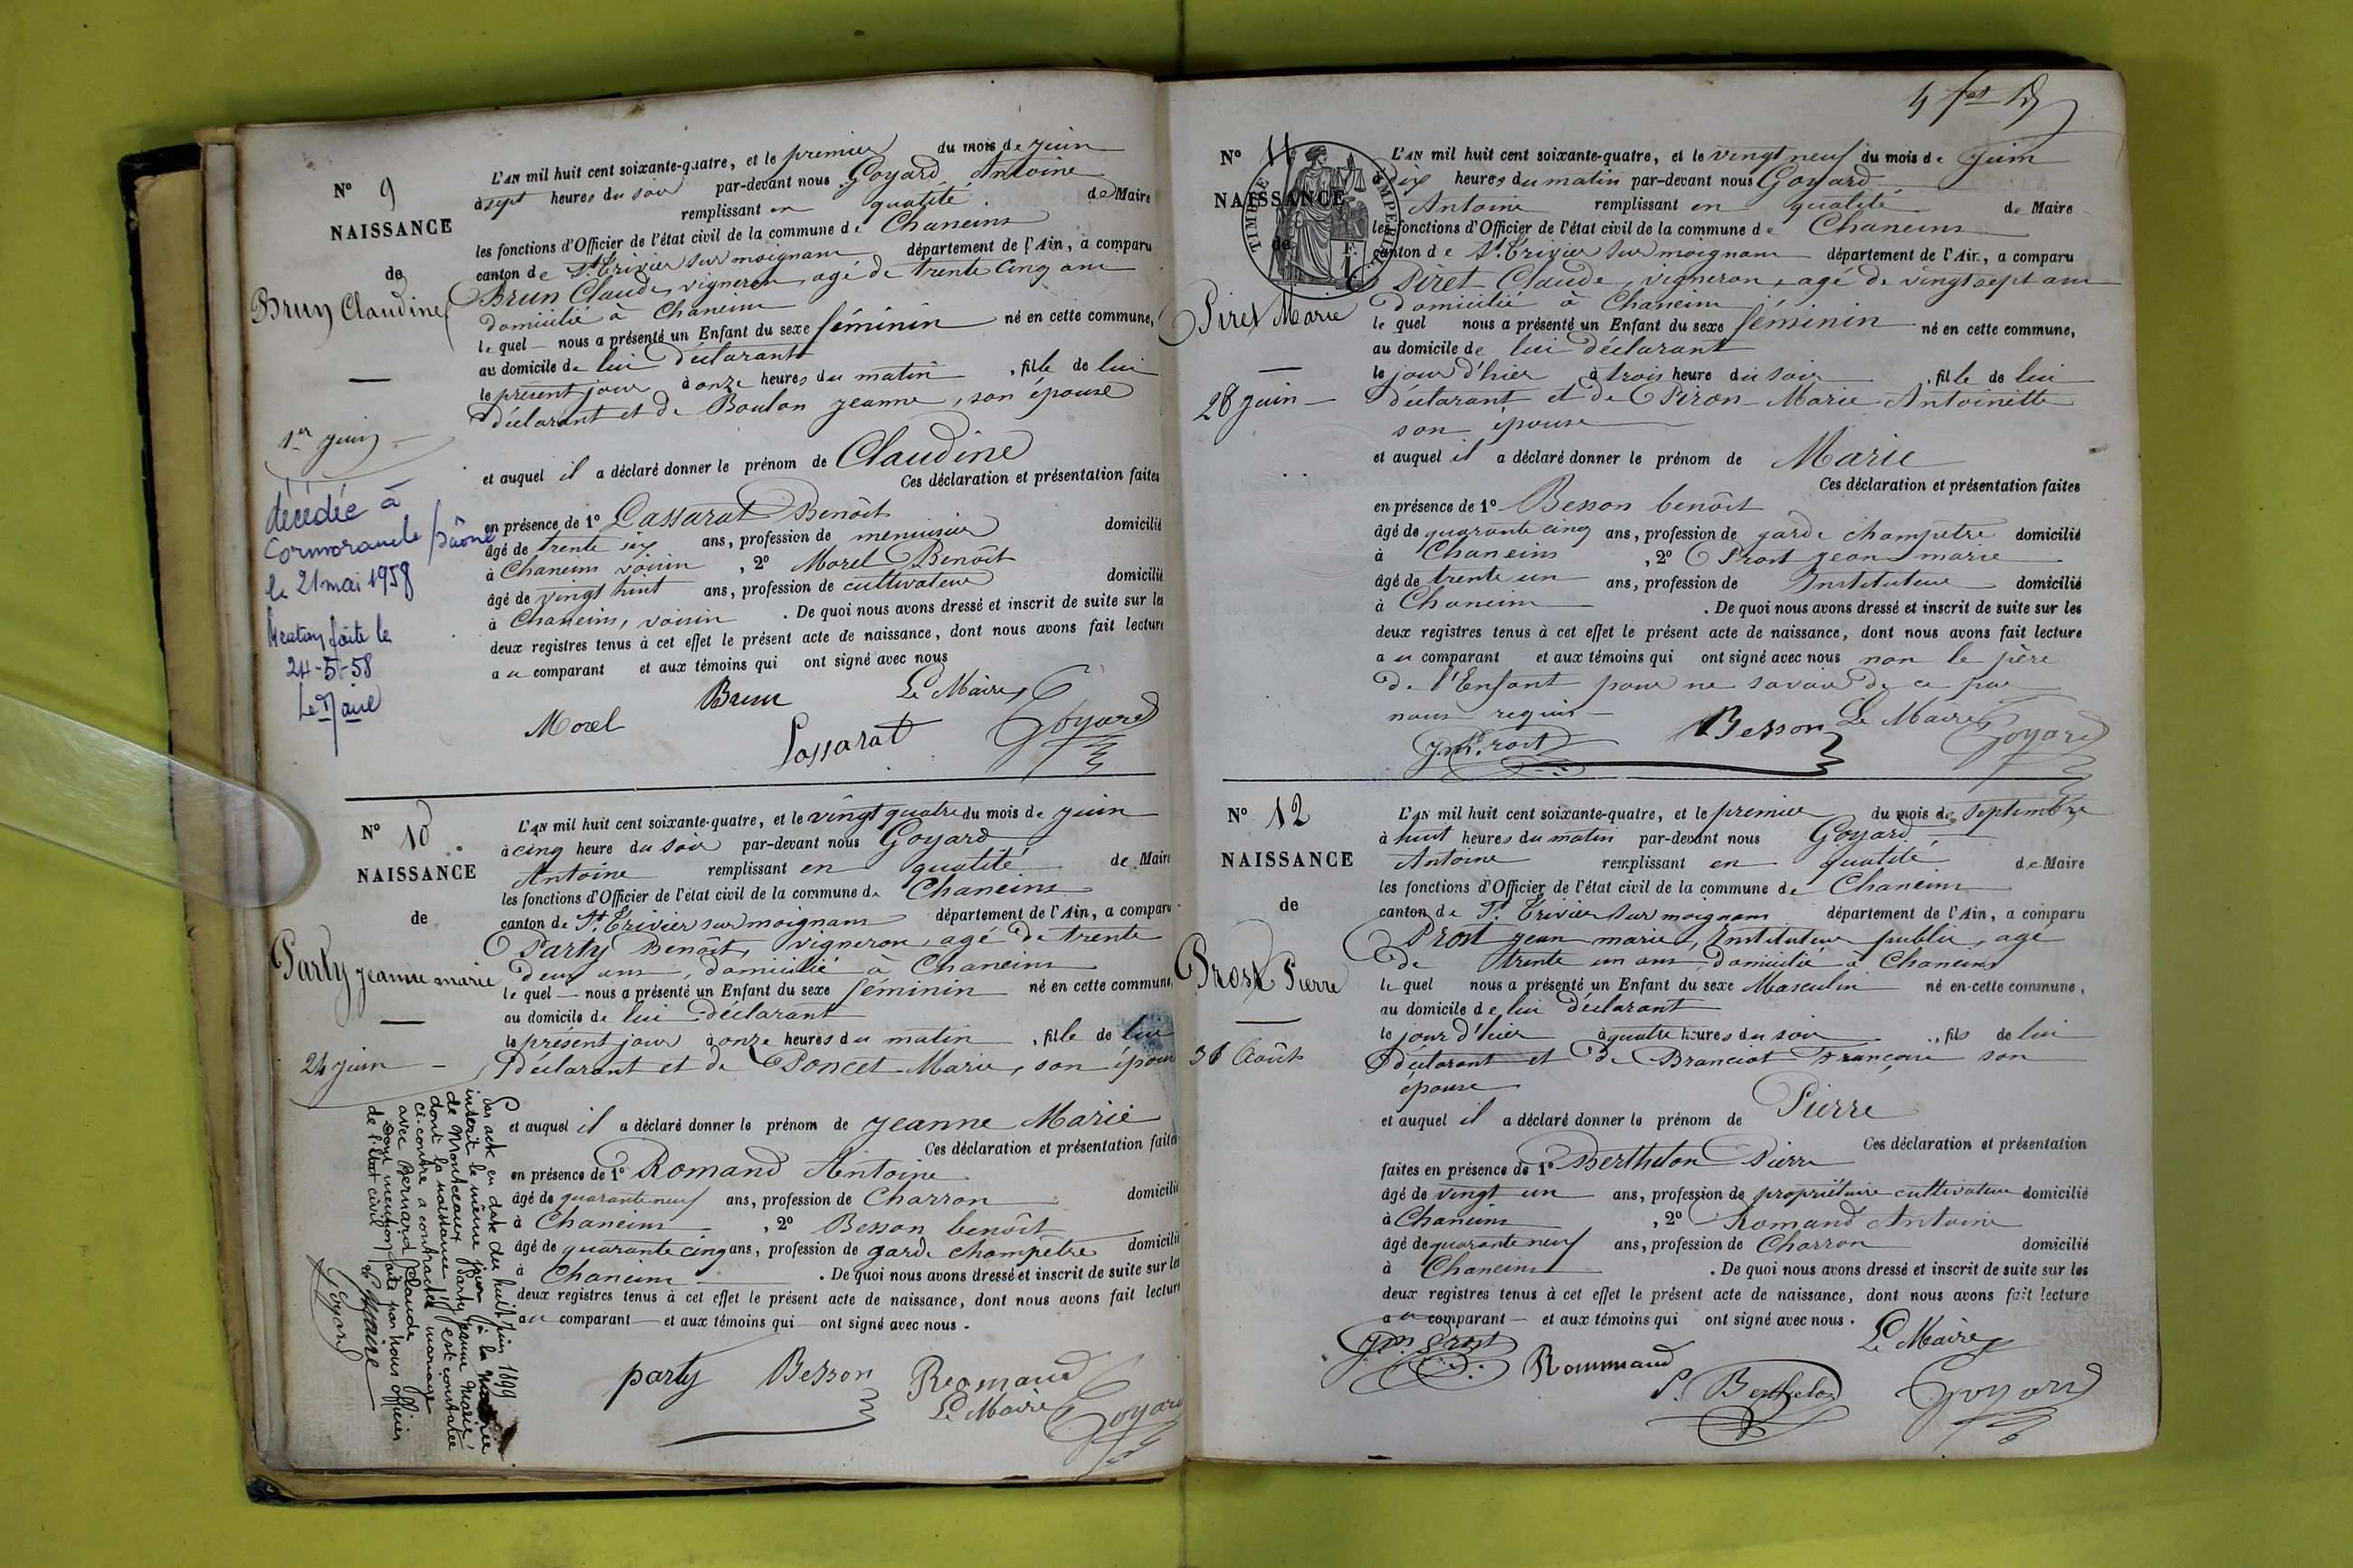 N° 9
NAISSANCE
de
Brun Claudine
1er juin
décédée à
Cormoranche / Saône
le 21 mai 1958
Mention faite le
24-5-58
Le Maire
L'AN mil huit cent soixante-quatre, et le premier du mois de juin
à sept heures du soir par-devant nous Goyard Antoine
remplissant en qualité de Maire
les fonctions d'Officier de l'état civil de la commune de Chaneins
canton de St. Trivier sur moignans département de l'Ain, a comparu
Brun Claude, vigneron, agé de trente cinq ans
domicilié à Chaneins
le quel nous a présenté un Enfant du sexe féminin né en cette commune,
au domicile de lui déclarant
le présent jour à onze heures du matin, fille de lui
déclarant et de Boulon jeanne, son épouse
et auquel il a déclaré donner le prénom de Claudine
Ces déclaration et présentation faites
en présence de 1° Lassarat Benoît
âgé de trente six ans, profession de menuisier domicilié
à Chaneins voisin, 2° Morel Benoît
âgé de vingt huit ans, profession de cultivateur domicilié
à Chaneins, voisin. De quoi nous avons dressé et inscrit de suite sur les
deux registres tenus à cet effet le présent acte de naissance, dont nous avons fait lecture
au comparant et aux témoins qui ont signé avec nous
Morel Brun Le Maire
Lassarat Goyard
N° 10
NAISSANCE
de
Party jeanne marie
24 juin
Par acte en date du huit juin 1899
inscrit le même jour à la Mairie
de Monceaux Party Jeanne Marie,
dont la naissance est constatée
ci-contre a contracté mariage
avec Bernard Claude
Dont mention faite par nous officier
de l'état civil
Le Maire
Goyard
L'AN mil huit cent soixante-quatre, et le vingt quatre du mois de juin
à cinq heure du soir par-devant nous Goyard
Antoine remplissant en qualité de Maire
les fonctions d'Officier de l'état civil de la commune de Chaneins
canton de St. Trivier sur moignans département de l'Ain, a comparu
Party Benoît, vigneron, agé de trente
deux ans, domicilié à Chaneins
le quel nous a présenté un Enfant du sexe féminin né en cette commune,
au domicile de lui déclarant
le présent jour à onze heures du matin, fille de lui
déclarant et de Poncet Marie, son épouse
et auquel il a déclaré donner le prénom de jeanne Marie
Ces déclaration et présentation faites
en présence de 1° Romand Antoine
âgé de quarante neuf ans, profession de Charron domicilié
à Chaneins, 2° Besson benoît
âgé de quarante cinq ans, profession de garde champêtre domicilié
à Chaneins. De quoi nous avons dressé et inscrit de suite sur les
deux registres tenus à cet effet le présent acte de naissance, dont nous avons fait lecture
au comparant et aux témoins qui ont signé avec nous.
party Besson Romand
Le Maire
Goyard
N° 11
NAISSANCE
de
TIMBRE IMPERIAL
Piret Marie
28 juin
L'AN mil huit cent soixante-quatre, et le vingt neuf du mois de juin
à six heures du matin par-devant nous Goyard
Antoine remplissant en qualité de Maire
les fonctions d'Officier de l'état civil de la commune de Chaneins
canton de St. Trivier sur moignans département de l'Ain, a comparu
Piret Claude, vigneron, agé de vingt sept ans
domicilié à Chaneins
le quel nous a présenté un Enfant du sexe féminin né en cette commune,
au domicile de lui déclarant
le jour d'hier à trois heure du soir, fille de lui
déclarant et de Piron Marie Antoinette
son épouse
et auquel il a déclaré donner le prénom de Marie
Ces déclaration et présentation faites
en présence de 1° Besson benoît
âgé de quarante cinq ans, profession de garde champêtre domicilié
à Chaneins, 2° Prost jean marie
âgé de trente un ans, profession de Instituteur domicilié
à Chaneins. De quoi nous avons dressé et inscrit de suite sur les
deux registres tenus à cet effet le présent acte de naissance, dont nous avons fait lecture
au comparant et aux témoins qui ont signé avec nous non le père
de l'Enfant pour ne savoir de ce par
nous requis
Jm Prost Besson Le Maire Goyard
N° 12
NAISSANCE
de
Prost Pierre
31 Août
L'AN mil huit cent soixante-quatre, et le premier du mois de septembre
à huit heures du matin par-devant nous Goyard
Antoine remplissant en qualité de Maire
les fonctions d'Officier de l'état civil de la commune de Chaneins
canton de St. Trivier sur moignans département de l'Ain, a comparu
Prost jean marie, Instituteur public, agé
de trente un ans domicilié à Chaneins
le quel nous a présenté un Enfant du sexe Masculin né en cette commune,
au domicile de lui déclarant
le jour d'hier à quatre heures du soir, fils de lui
déclarant et de Branciat Françoise son
épouse
et auquel il a déclaré donner le prénom de Pierre
Ces déclaration et présentation
faites en présence de 1° Berthelon Pierre
âgé de vingt un ans, profession de propriétaire cultivateur domicilié
à Chaneins, 2° Romand Antoine
âgé de quarante neuf ans, profession de Charron domicilié
à Chaneins. De quoi nous avons dressé et inscrit de suite sur les
deux registres tenus à cet effet le présent acte de naissance, dont nous avons fait lecture
au comparant et aux témoins qui ont signé avec nous.
Jm Prost Rommand Le Maire
P. Berthelon Goyard